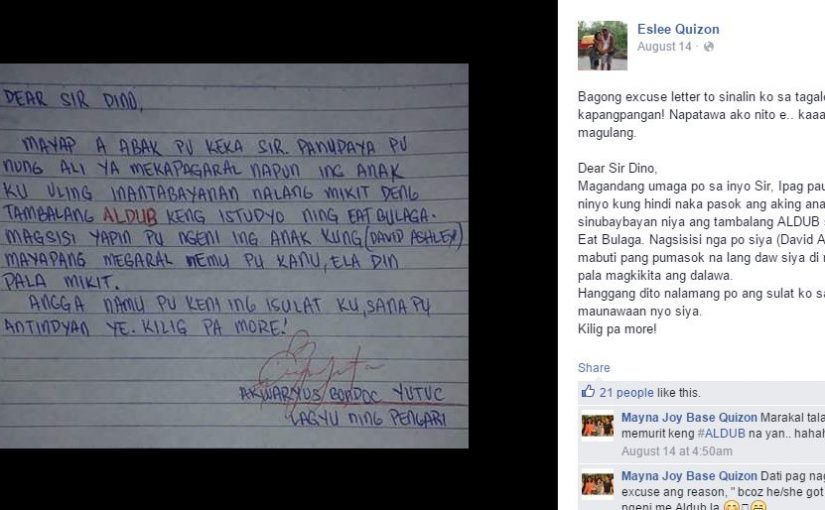 DEAR SIR DINO,
MAYAP A ABAK PU KEKA SIR. PANUPAYA PU
NUNG ALI YA MEKAPAGARAL NAPUN ING ANAK
KU ULING INANTABAYANAN NALANG MIKIT DENG
TAMBALANG ALDUB KENG ISTUDYO NING EAT BULAGA.
MAGSISI YAPIN PU NGENI ING ANAK KUNG (DAVID ASHLEY)
MAYAPANG MEGARAL NEMU PU KANU, ELA DIN
PALA MIKIT.
ANGGA NAMU PU KENI ING ISULAT KU, SANA PU
ANTINDYAN YE. KILIG PA MORE!
AKWARYUS BONDOC YUTUC
LAGYU NING PENGARI
Eslee Quizon
August 14
Bagong excuse letter to sinalin ko sa
kapangpangan! Napatawa ako nito e..
magulang.
Dear Sir Dino,
Magandang umaga po sa inyo Sir, Ipag
ninyo kung hindi naka pasok ang aking
sinubaybayan niya ang tambalang ALDUB
Eat Bulaga. Nagsisisi nga po siya (David
mabuti pang pumasok na lang daw siya di
pala magkikita ang dalawa.
Hanggang dito nalamang po ang sulat ko
maunawaan nyo siya.
Kilig pa more!
Share
21 people like this.
Mayna Joy Base Quizon Marakal
memurit keng #ALDUB na yan..
August 14 at 4:50am
Mayna Joy Base Quizon Dati pag
excuse ang reason, " bcoz he/she got
ngeni me Aldub la